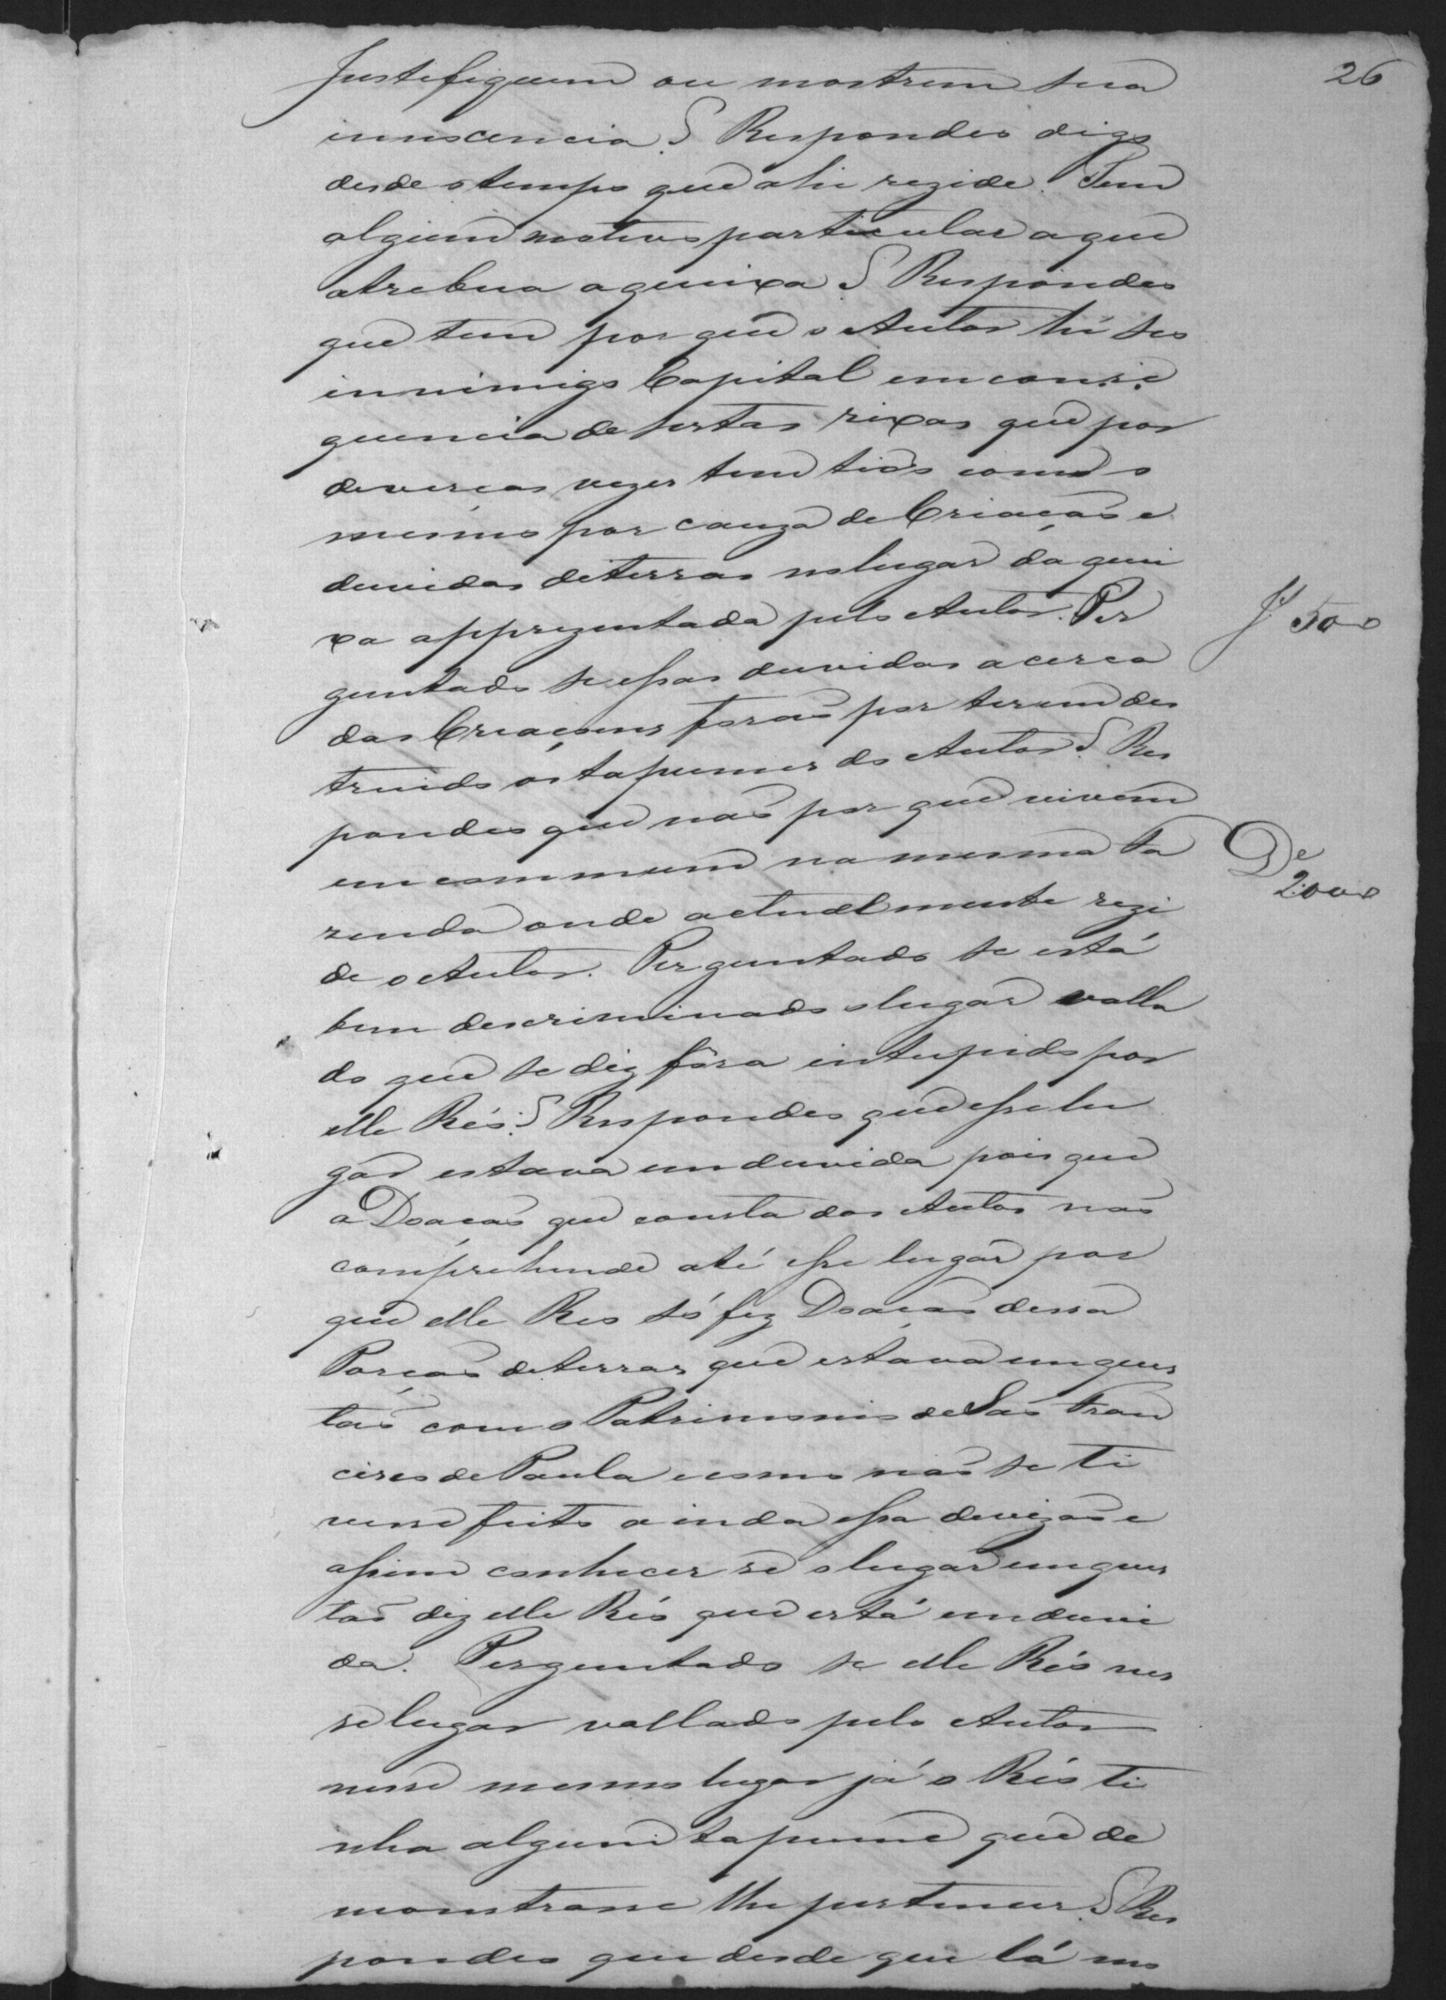 26
Justefiquem ou mostrem sua
innocencia? Respondeo digo
desde o tempo que ahi rezide. Tem
algum motivo particular a que
atrebua a queixa? Respondeo
que tem por que o Autor hé seo
innimigo Capital em conse
quencia de sertas rixas que por
deverças vezes tem tido com o
mesmo por cauza de Criação e
duvidas de terras no lugar da quei
xa apprezentada pelo Autor. Per
guntado se essas duvidas acerca
das Criaçoens forão por terem des
truido os tapumes do Autor? Res
pondeo que não por que vivem
em commum na mesma Fa
zenda onde actualmente rezi
de o Autor. Perguntado se está
bem descriminado o lugar valla
do que se diz fôra intupido por
elle Réo? Respondeo que esse lu
gar estava em duvida pois que
a Doação que consta dos Autos não
comprehende até esse lugar por
que elle Reo só fez Doação dessa
Porção de terras que estava em ques
tão com o Patrimonio de São Fran
cisco de Paula e como não se ti
vesse feito ainda essa devizão e
assim conhecer-se o lugar em ques
tão diz elle Réo que está em duvi
da. Perguntado se elle Réo nes
se lugar vallado pelo Autor
nesse mesmo lugar já o Réo ti
nha algum tapume que de
monstrasse lhe pertencer? Res
pondeo que desde que lá mo
Jl 500
De
2000